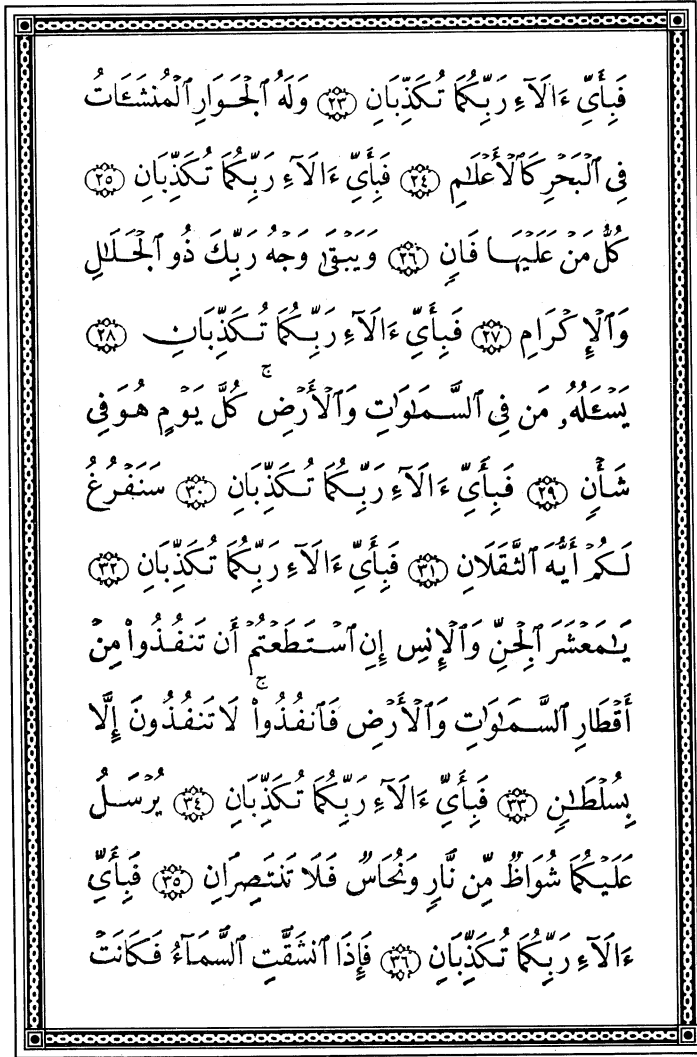 فَبِأَيِّ ءَالَآءِ رَبِّكُمَا تُكَذِّبَانِ ٢٣ وَلَهُ ٱلْجَوَارِ ٱلْمُنشَـَٔاتُ
فِى ٱلْبَحْرِ كَٱلْأَعْلَٰمِ ٢٤ فَبِأَيِّ ءَالَآءِ رَبِّكُمَا تُكَذِّبَانِ ٢٥
كُلُّ مَنْ عَلَيْهَا فَانٍ ٢٦ وَيَبْقَىٰ وَجْهُ رَبِّكَ ذُو ٱلْجَلَٰلِ
وَٱلْإِكْرَامِ ٢٧ فَبِأَيِّ ءَالَآءِ رَبِّكُمَا تُكَذِّبَانِ ٢٨
يَسْـَٔلُهُۥ مَن فِى ٱلسَّمَٰوَٰتِ وَٱلْأَرْضِ ۚ كُلَّ يَوْمٍ هُوَ فِى
شَأْنٍ ٢٩ فَبِأَيِّ ءَالَآءِ رَبِّكُمَا تُكَذِّبَانِ ٣٠ سَنَفْرُغُ
لَكُمْ أَيُّهَ ٱلثَّقَلَانِ ٣١ فَبِأَيِّ ءَالَآءِ رَبِّكُمَا تُكَذِّبَانِ ٣٢
يَٰمَعْشَرَ ٱلْجِنِّ وَٱلْإِنسِ إِنِ ٱسْتَطَعْتُمْ أَن تَنفُذُوا۟ مِنْ
أَقْطَارِ ٱلسَّمَٰوَٰتِ وَٱلْأَرْضِ فَٱنفُذُوا۟ ۚ لَا تَنفُذُونَ إِلَّا
بِسُلْطَٰنٍ ٣٣ فَبِأَيِّ ءَالَآءِ رَبِّكُمَا تُكَذِّبَانِ ٣٤ يُرْسَلُ
عَلَيْكُمَا شُوَاظٌ مِّن نَّارٍ وَنُحَاسٌ فَلَا تَنتَصِرَانِ ٣٥ فَبِأَيِّ
ءَالَآءِ رَبِّكُمَا تُكَذِّبَانِ ٣٦ فَإِذَا ٱنشَقَّتِ ٱلسَّمَآءُ فَكَانَتْ